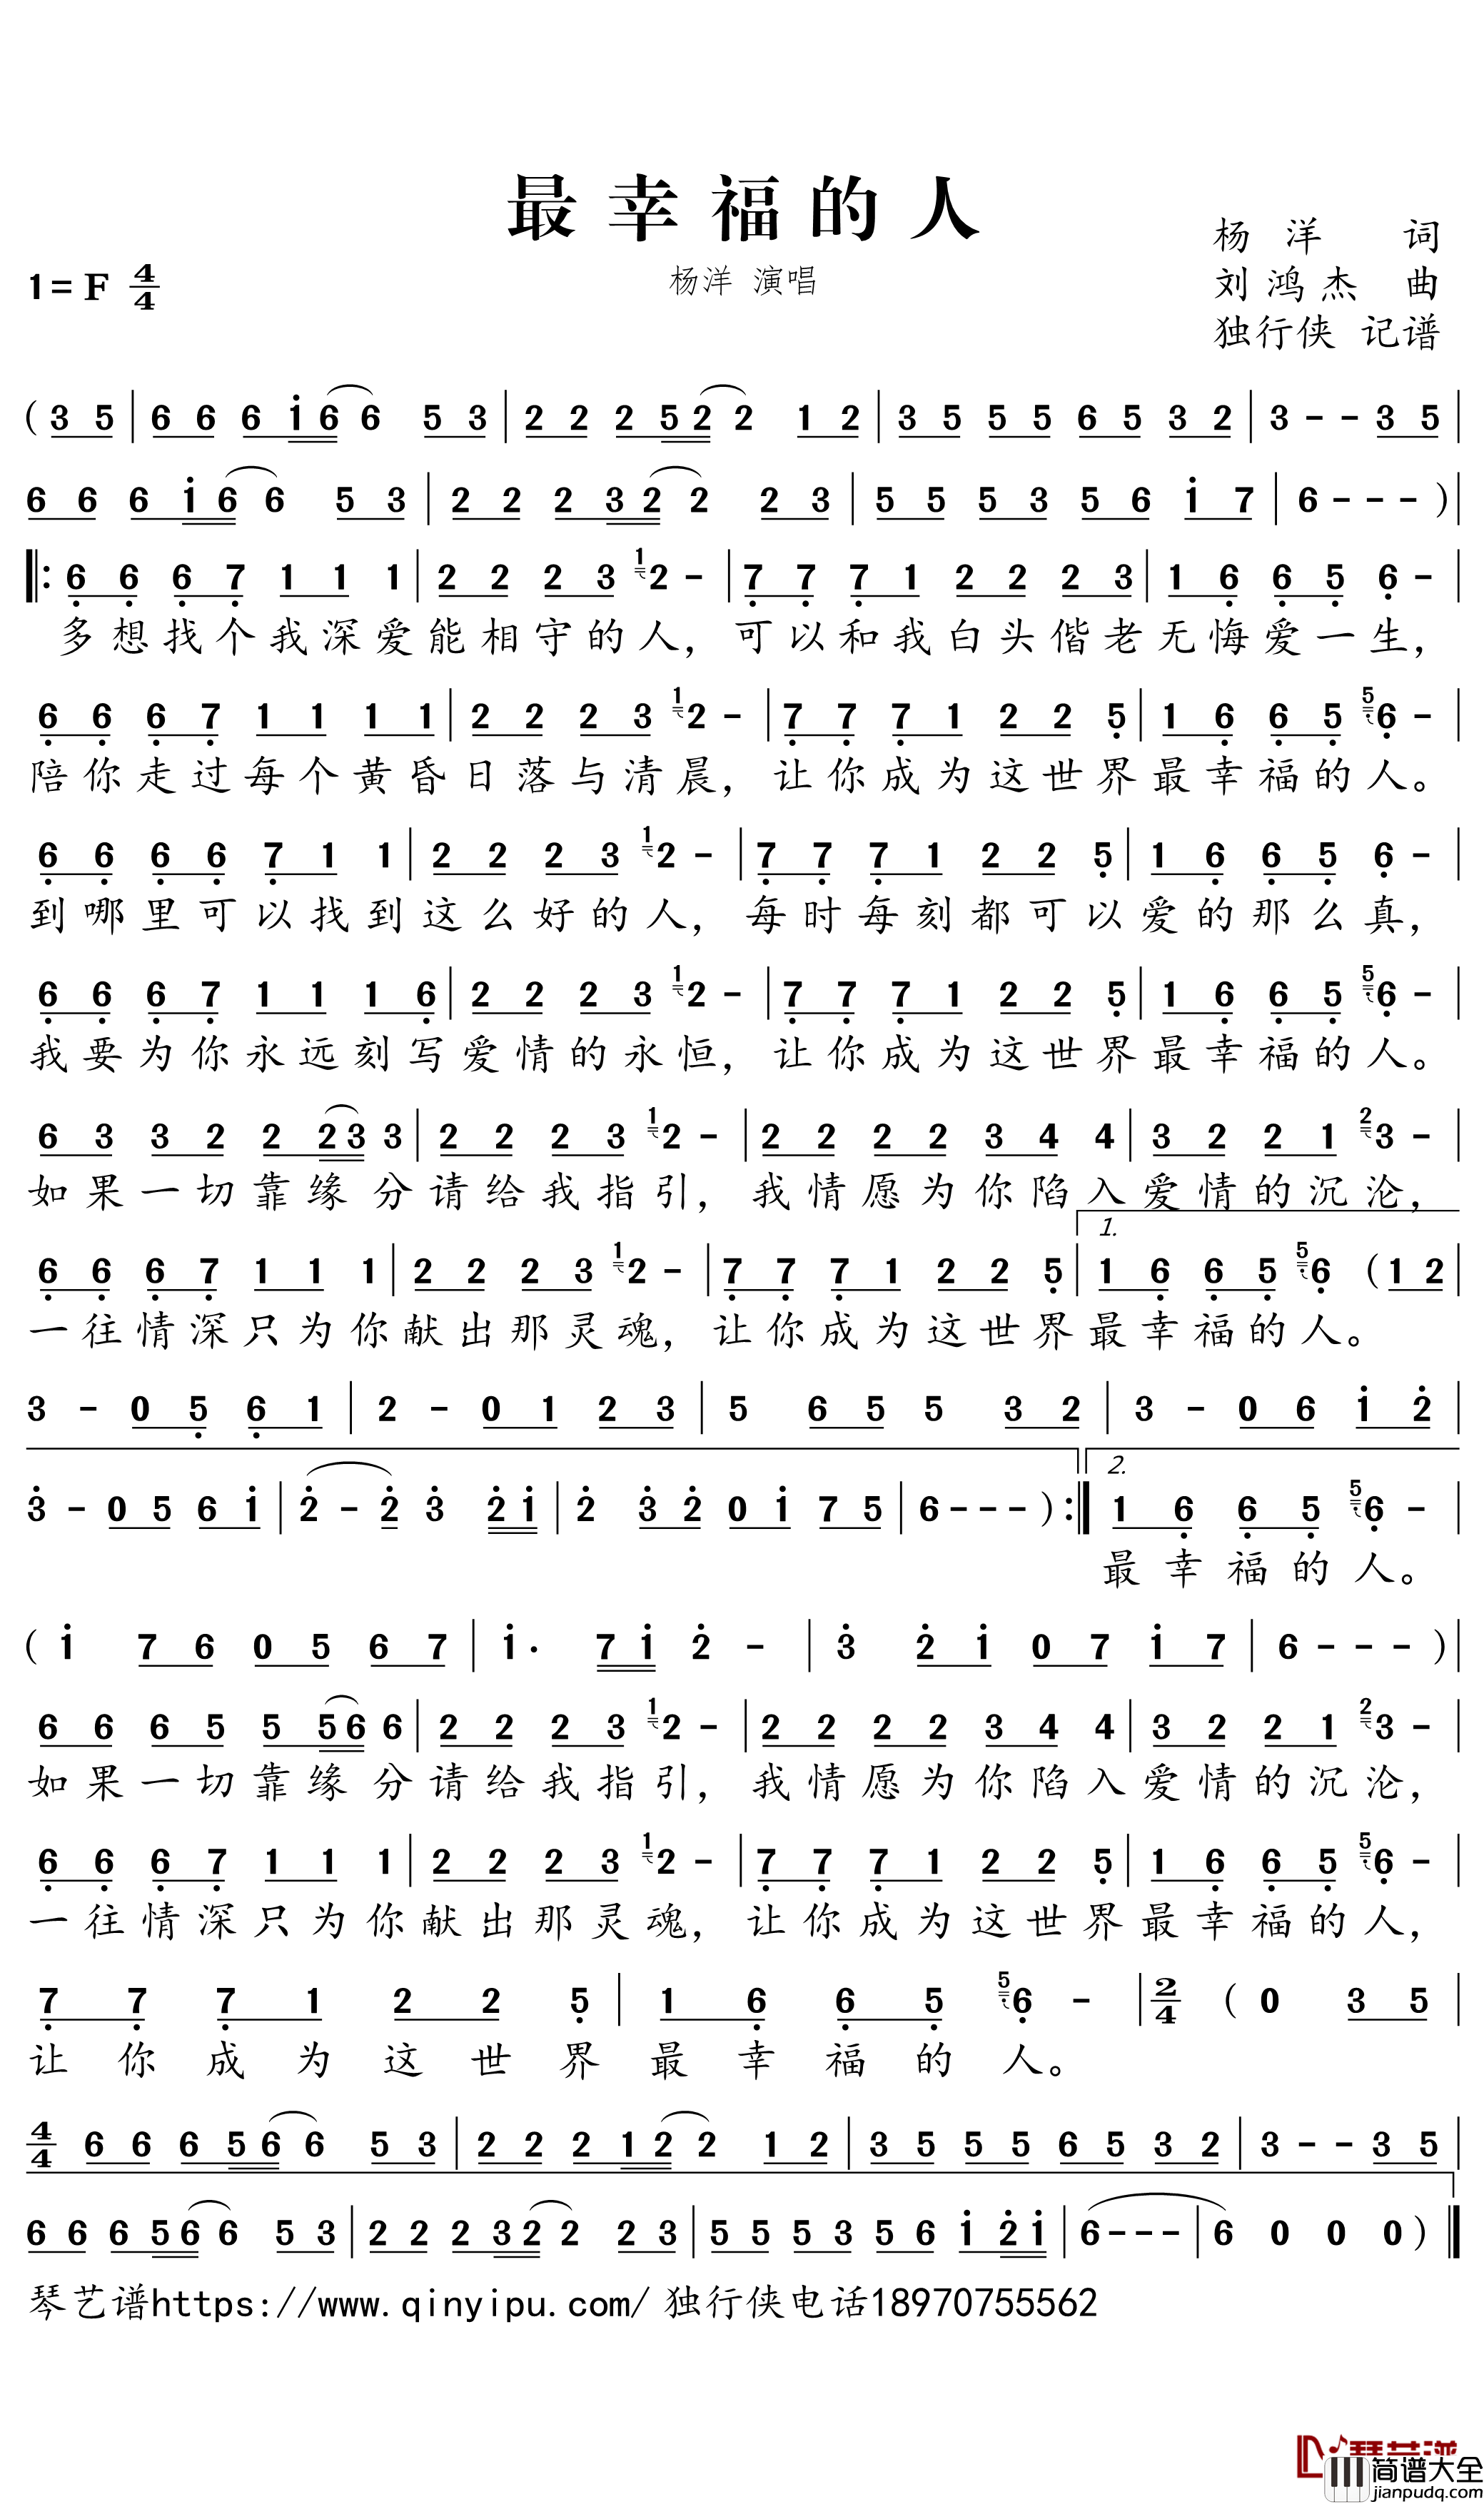 最幸福的人
杨洋 词
1=F 4/4
杨洋 演唱
刘鸿杰 曲
独行侠 记谱
( 3 5 | 6 6 6 i 6 6 5 3 | 2 2 2 5 2 2 1 2 | 3 5 5 5 6 5 3 2 | 3 - - 3 5 |
6 6 6 i 6 6 5 3 | 2 2 2 3 2 2 2 3 | 5 5 5 3 5 6 i 7 | 6 - - - ) |
‖: 6̣ 6̣ 6̣ 7̣ 1 1 1 | 2 2 2 3 1 2 - | 7̣ 7̣ 7̣ 1 2 2 2 3 | 1 6̣ 6̣ 5̣ 6̣ - |
多想找个我深爱能相守的人，可以和我白头偕老无悔爱一生，
6̣ 6̣ 6̣ 7̣ 1 1 1 1 | 2 2 2 3 1 2 - | 7̣ 7̣ 7̣ 1 2 2 5̣ | 1 6̣ 6̣ 5̣ 5̣ 6̣ - |
陪你走过每个黄昏日落与清晨，让你成为这世界最幸福的人。
6̣ 6̣ 6̣ 6̣ 7̣ 1 1 | 2 2 2 3 1 2 - | 7̣ 7̣ 7̣ 1 2 2 5̣ | 1 6̣ 6̣ 5̣ 6̣ - |
到哪里可以找到这么好的人，每时每刻都可以爱的那么真，
6̣ 6̣ 6̣ 7̣ 1 1 1 6̣ | 2 2 2 3 1 2 - | 7̣ 7̣ 7̣ 1 2 2 5̣ | 1 6̣ 6̣ 5̣ 5̣ 6̣ - |
我要为你永远刻写爱情的永恒，让你成为这世界最幸福的人。
6 3 3 2 2 2 3 3 | 2 2 2 3 1 2 - | 2 2 2 2 3 4 4 | 3 2 2 1 2 3 - |
如果一切靠缘分请给我指引，我情愿为你陷入爱情的沉沦，
6̣ 6̣ 6̣ 7̣ 1 1 1 | 2 2 2 3 1 2 - | 7̣ 7̣ 7̣ 1 2 2 5̣ | 1. 1 6̣ 6̣ 5̣ 5̣ 6̣ ( 1 2 |
一往情深只为你献出那灵魂，让你成为这世界最幸福的人。
3 - 0 5̣ 6̣ 1 | 2 - 0 1 2 3 | 5 6 5 5 3 2 | 3 - 0 6 i 2̇ |
3̇ - 0 5 6 i | 2̇ - 2̇ 3̇ 2̇ i | 2̇ 3̇ 2̇ 0 i 7 5 | 6 - - - ) :‖ 2. 1 6̣ 6̣ 5̣ 5̣ 6̣ - |
最幸福的人。
( i 7 6 0 5 6 7 | i · 7 i 2̇ - | 3̇ 2̇ i 0 7 i 7 | 6 - - - ) |
6 6 6 5 5 5 6 6 | 2 2 2 3 1 2 - | 2 2 2 2 3 4 4 | 3 2 2 1 2 3 - |
如果一切靠缘分请给我指引，我情愿为你陷入爱情的沉沦，
6̣ 6̣ 6̣ 7̣ 1 1 1 | 2 2 2 3 1 2 - | 7̣ 7̣ 7̣ 1 2 2 5̣ | 1 6̣ 6̣ 5̣ 5̣ 6̣ - |
一往情深只为你献出那灵魂，让你成为这世界最幸福的人，
7̣ 7̣ 7̣ 1 2 2 5̣ | 1 6̣ 6̣ 5̣ 5̣ 6̣ - | 2/4 ( 0 3 5 |
让你成为这世界最幸福的人。
4/4 6 6 6 5 6 6 5 3 | 2 2 2 1 2 2 1 2 | 3 5 5 5 6 5 3 2 | 3 - - 3 5 |
6 6 6 5 6 6 5 3 | 2 2 2 3 2 2 2 3 | 5 5 5 3 5 6 i 2̇ i | 6 - - - | 6 0 0 0 ) ‖
琴艺谱https://www.qinyipu.com/ 独行侠电话18970755562
琴艺谱
简谱大全
jianpudq.com